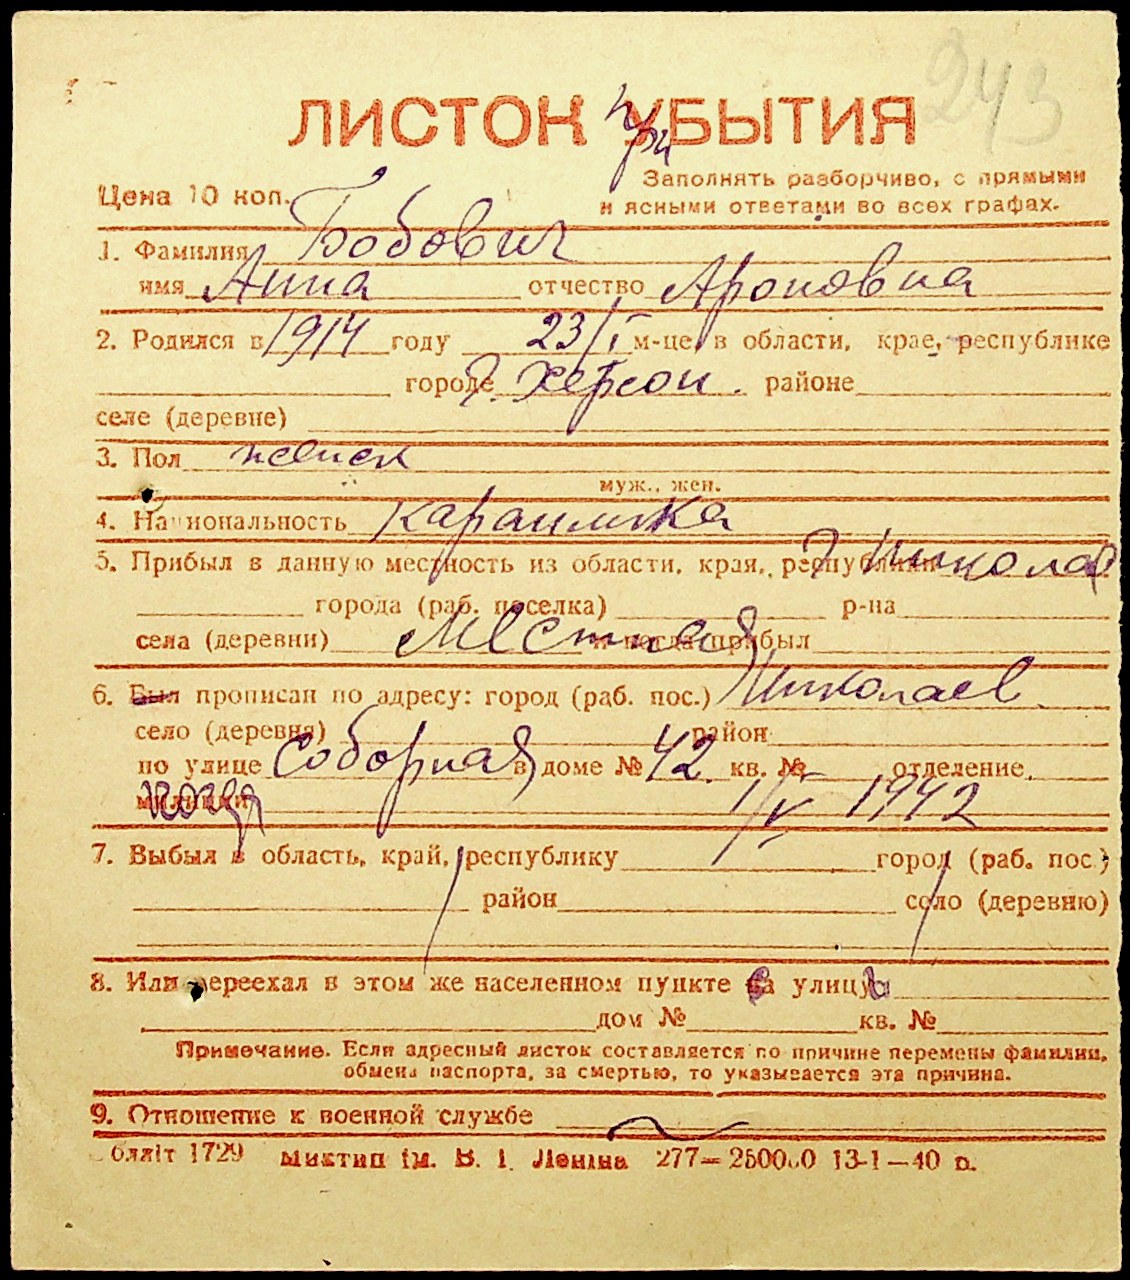 243
ЛИСТОК УБЫТИЯ
при
Цена 10 коп.
Заполнять разборчиво, с прямыми
и ясными ответами во всех графах.
1. Фамилия Бобович
имя Анна отчество Ароновна
2. Родился в 1914 году 23/I м-це, в области, крае, республике
городе г. Херсон. районе
селе (деревне)
3. Пол женск
муж., жен.
4. Национальность караимка
5. Прибыл в данную местность из области, края, республики г. Николаев
города (раб. поселка) р-на
села (деревни) Местная и когда прибыл
6. Был прописан по адресу: город (раб. пос.) Николаев
село (деревня) район
по улице Соборная в доме № 42 кв. № отделение
милиции когда 1/V 1942
7. Выбыл в область, край, республику город (раб. пос.)
район село (деревню)
8. Или переехал в этом же населенном пункте на улицу
дом № кв. №
Примечание. Если адресный листок составляется по причине перемены фамилии,
обмена паспорта, за смертью, то указывается эта причина.
9. Отношение к военной службе
обліт 1729 Миктип ім. В. І. Леніна 277—250000 13-1—40 р.